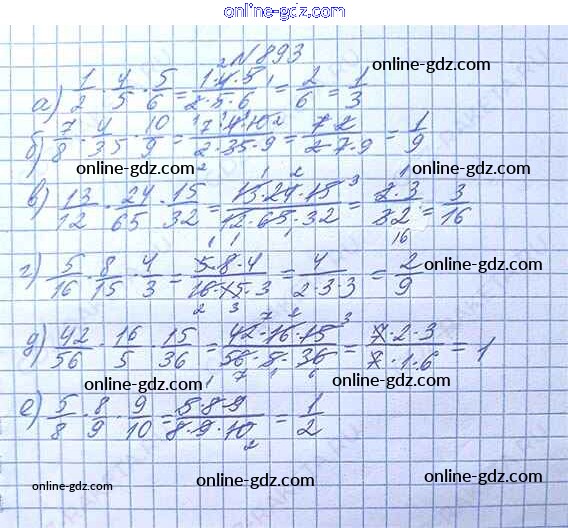 online-gdz.com
№893
online-gdz.com
а) 1/2 · 4/5 · 5/6 = 1·4·5/2·5·6 = 2/6 = 1/3
online-gdz.com
б) 7/8 · 4/35 · 10/9 = 7·4·10/2·35·9 = 7·2/2·7·9 = 1/9
в) 13/12 · 24/65 · 15/32 = 13·24·15/12·65·32 = 2·3/32 = 3/16
г) 5/16 · 8/15 · 4/3 = 5·8·4/16·15·3 = 4/2·3·3 = 2/9
online-gdz.com
д) 42/56 · 16/5 · 15/36 = 42·16·15/56·5·36 = 7·2·3/7·1·6 = 1
online-gdz.com online-gdz.com
е) 5/8 · 8/9 · 9/10 = 5·8·9/8·9·10 = 1/2
online-gdz.com online-gdz.com online-gdz.com